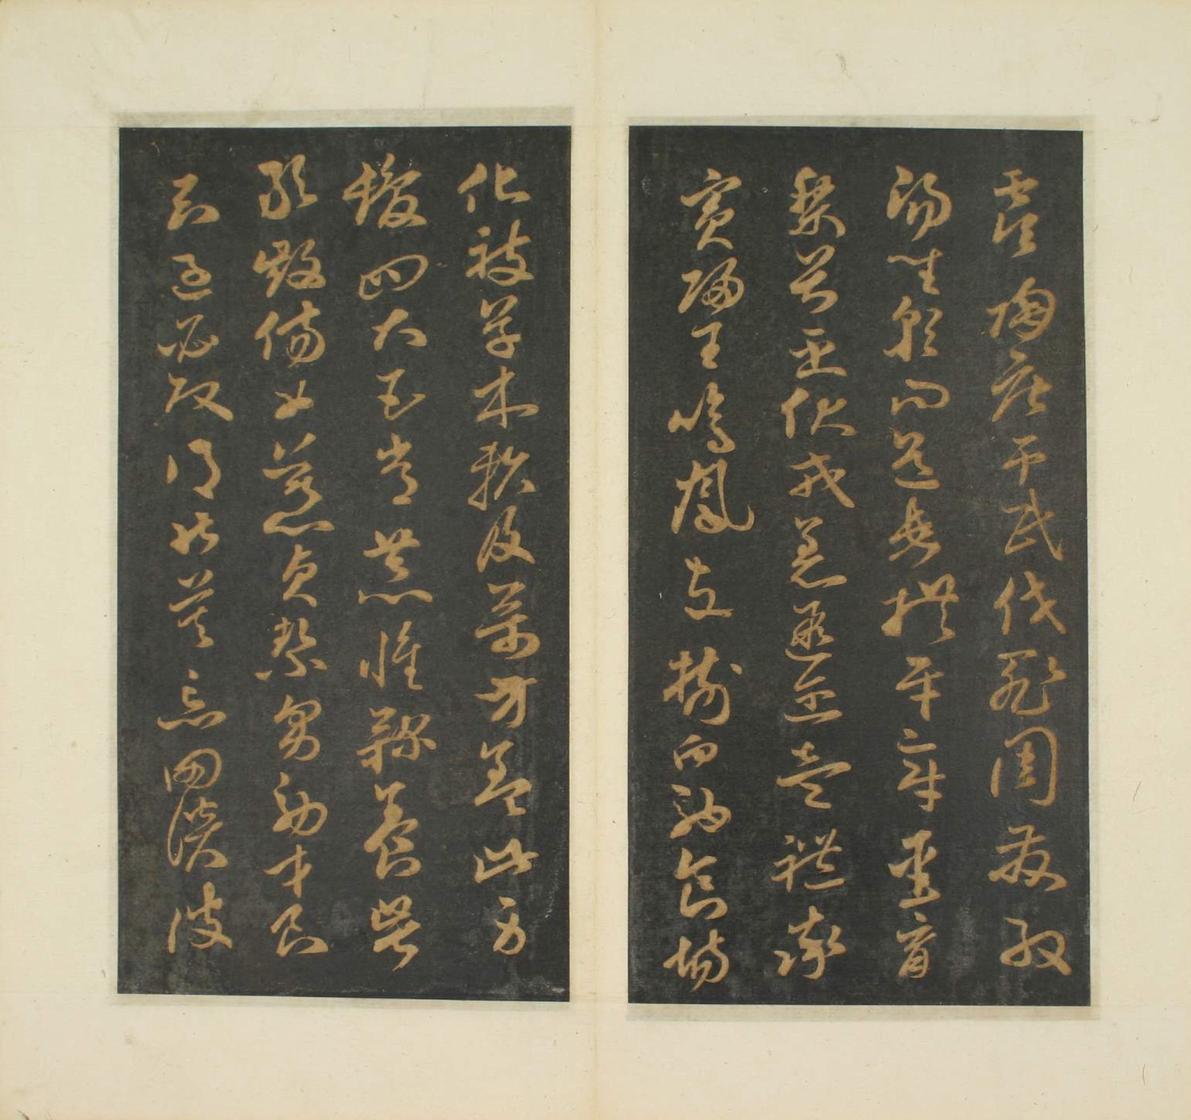 虞陶唐弔民伐罪周發殷
湯坐朝問道垂拱平章愛育
黎首臣伏戎羌遐邇壹體率
賓歸王鳴鳳在樹白駒食場
化被草木賴及萬方蓋此身
髮四大五常恭惟鞠養豈
敢毀傷女慕貞潔男效才良
知過必改得能莫忘罔談彼